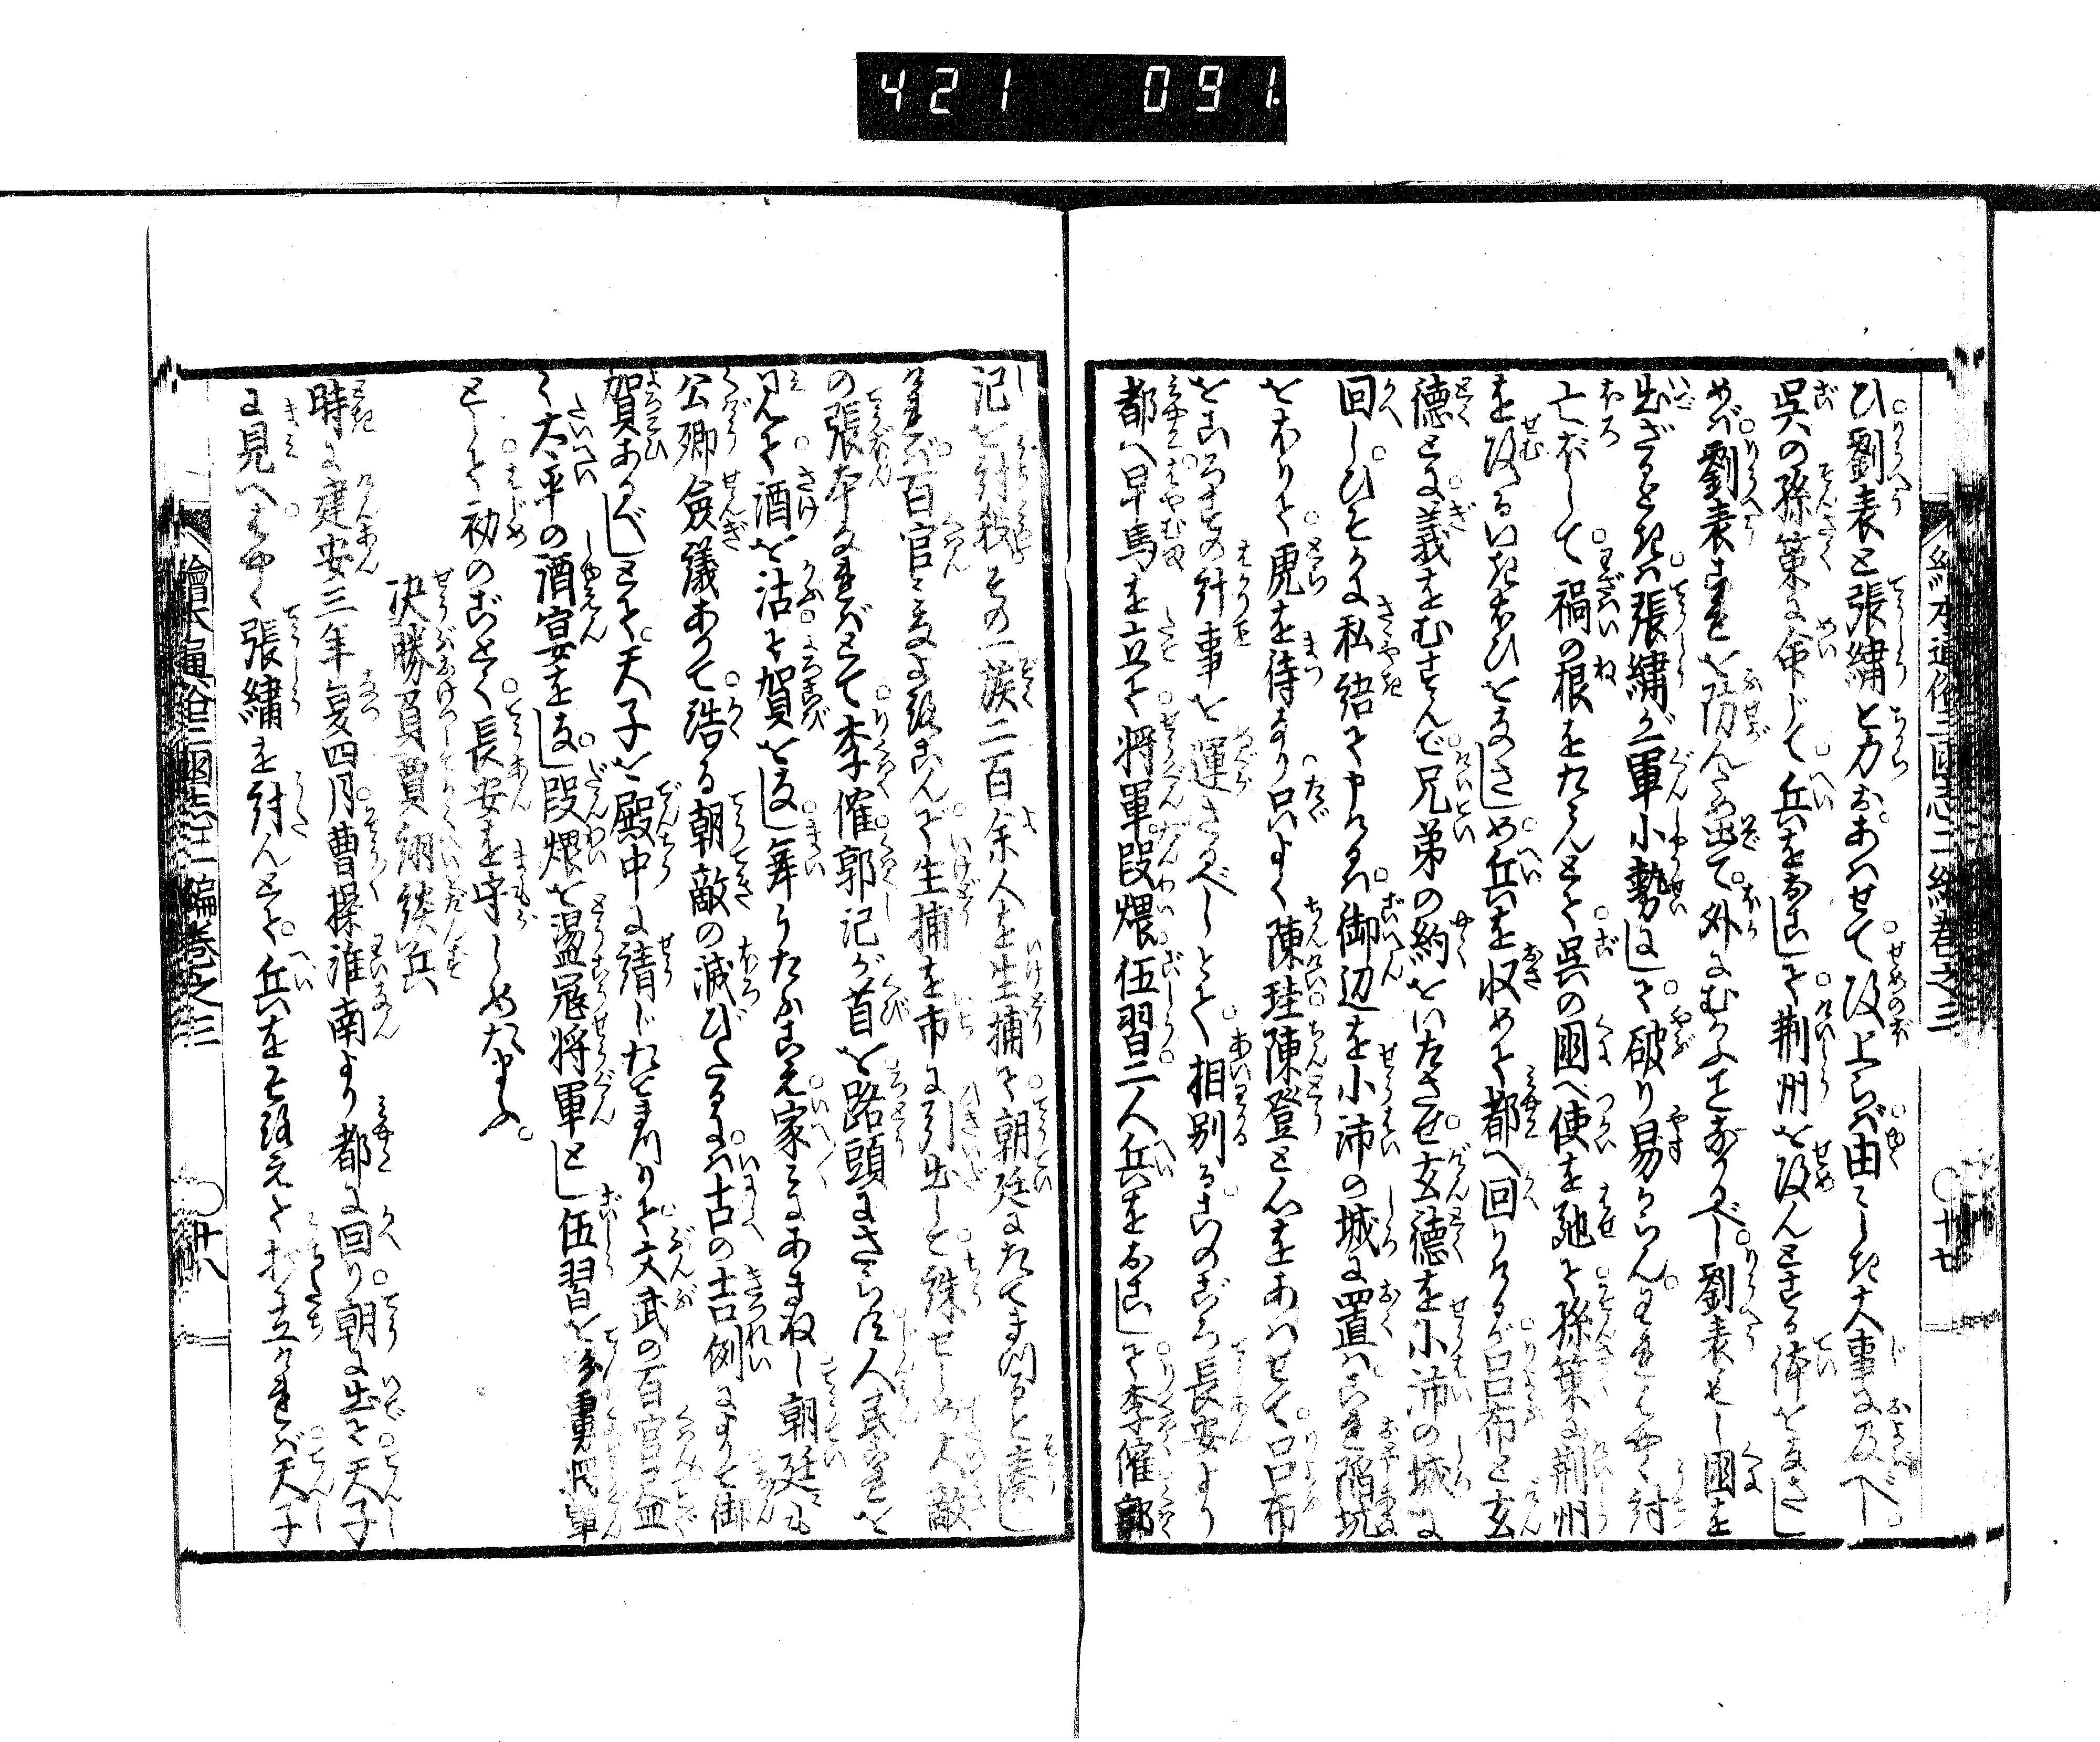 421 091.
絵本通俗三国志二編巻之三 ○十七
ひ劉表と張繍と力をあはせて攻上らば由々しき大事に及べし
呉の孫策に命じて兵をおこして荆州を攻んとする体をなさし
めバ劉表これを防んため出て外にむかふことあるべし劉表もし国を
出ざるときハ張繍が軍小勢にして破り易からんわれはやく討
亡ぼして禍の根をたゝんとて呉の国へ使を馳て孫策に荆州
を攻るいきおひをなさしめ兵を収めて都へ回りけるが呂布と玄
徳とに義をむすんで兄弟の約をいたさせ玄徳を小沛の城に
回しひそかに私語て申けるハ御辺を小沛の城に置ハこれ陥坑
をほりて虎を待なり只よく陳珪陳登と心をあはせて呂布
をころすの計事を運さるべしとて相別るこのごろ長安より
都へ早馬を立て将軍段煨伍習二人兵をおこして李傕郭
記を討殺その一族二百余人を生捕て朝廷にたてまつると奏し
けれバ百官みなよろこんで生捕を市に引出して誅せしめ大敵
の張本なれバとて李傕郭記が首を路頭にさらす人民これを
見て酒を沽て賀をなし舞うたふこゑ家々にあまねし朝廷にも
公卿僉議あつて浩る朝敵の滅びたるにハ古の吉例によりて御
賀あるべしとて天子を殿中に請じたてまつりて文武の百官盃
く太平の酒宴をなし段煨を盪寇将軍とし伍習を　　将軍
として初のごとく長安を守しめたまふ
決勝負賈詡談兵
時に建安三年夏四月曹操淮南より都に回り朝に出て天子
に見へはやく張繍を討んとて兵をそろえて打立けれバ天子
絵本通俗三国志二編巻之三 ○十八